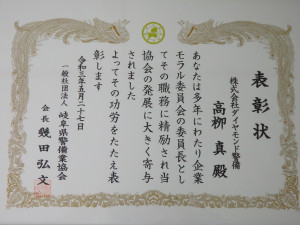 表彰状
株式会社ダイヤモンド警備
高柳 真 殿
あなたは多年にわたり企業
モラル委員会の委員長とし
てその職務に精励され当
協会の発展に大きく寄与
されました
よってその功労をたたえ表
彰します
令和三年五月二十七日
一般社団法人 岐阜県警備業協会
会長 幾田弘文